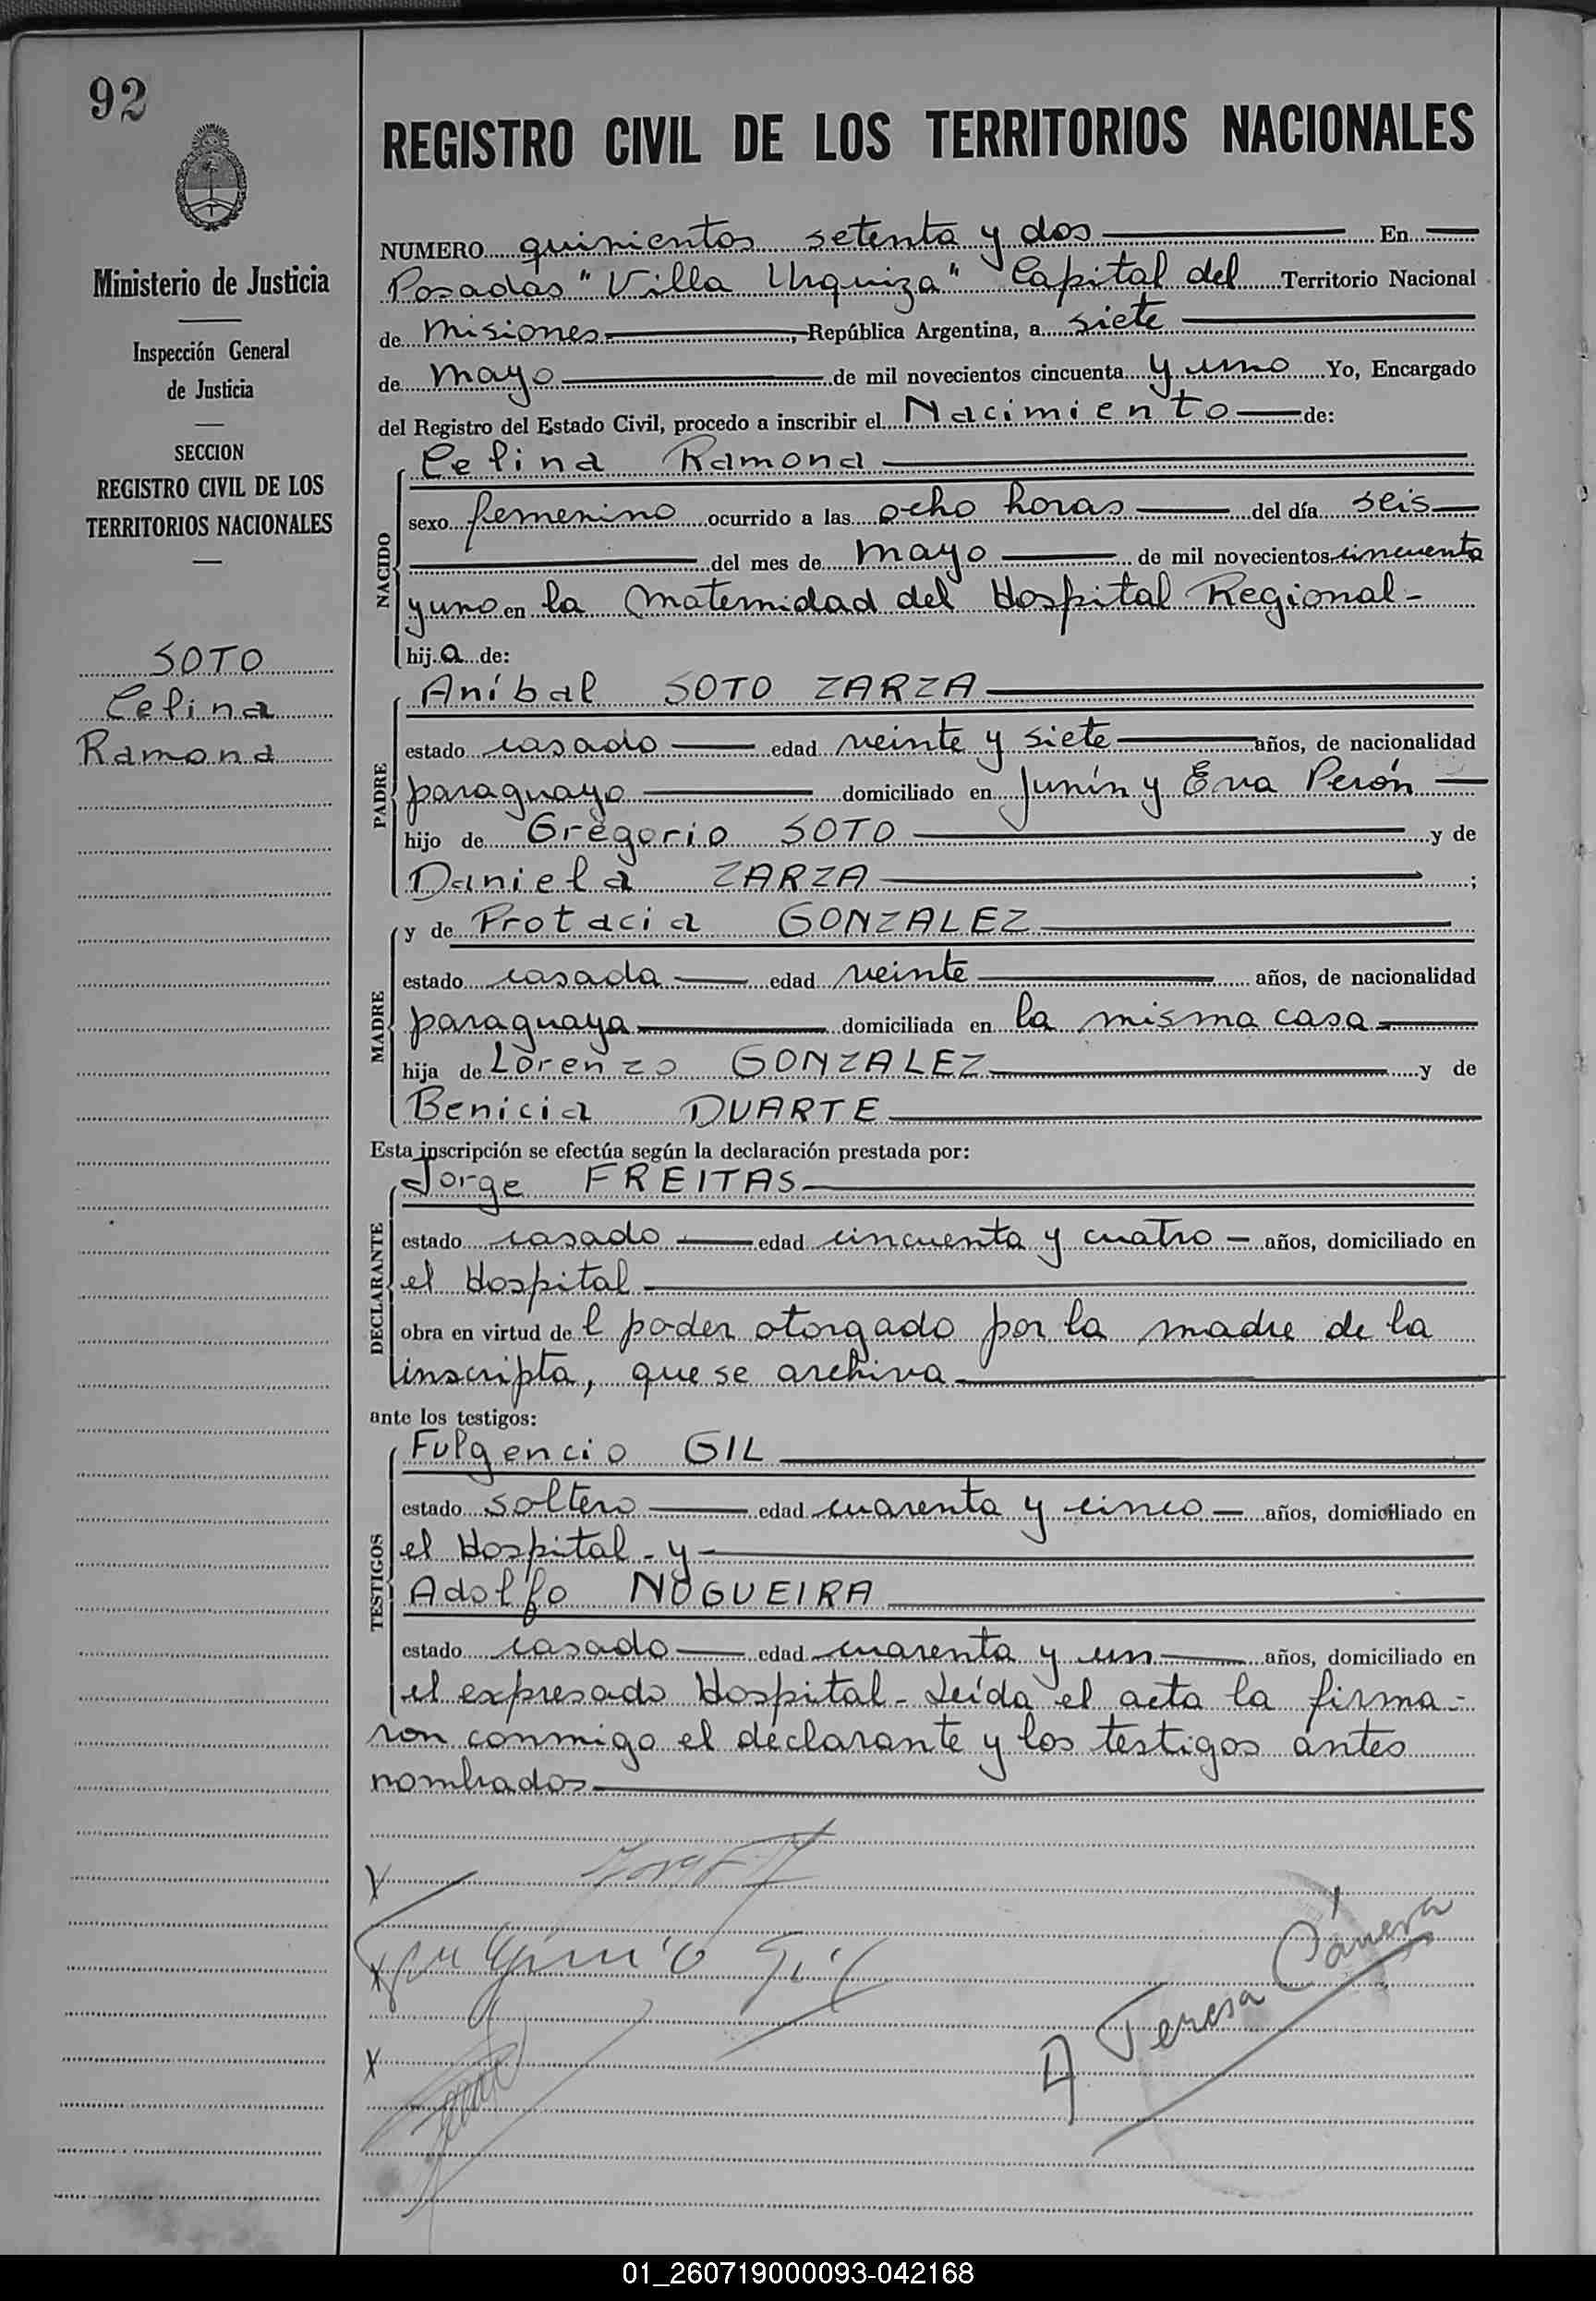 92
Ministerio de Justicia
Inspección General
de Justicia
SECCION
REGISTRO CIVIL DE LOS
TERRITORIOS NACIONALES
SOTO
Celina
Ramona
REGISTRO CIVIL DE LOS TERRITORIOS NACIONALES
NUMERO quinientos setenta y dos En
Posadas "Villa Urquiza" Capital del Territorio Nacional
de Misiones, República Argentina, a siete
de mayo de mil novecientos cincuenta y uno Yo, Encargado
del Registro del Estado Civil, procedo a inscribir el Nacimiento de:
NACIDO
Celina Ramona
sexo femenino ocurrido a las ocho horas del día seis
del mes de mayo de mil novecientos cincuenta
y uno en la Maternidad del Hospital Regional-
hija de:
PADRE
Aníbal SOTO ZARZA
estado casado edad veinte y siete años, de nacionalidad
paraguayo domiciliado en Junín y Eva Perón
hijo de Gregorio SOTO y de
Daniela ZARZA;
MADRE
y de Protacia GONZALEZ
estado casada edad veinte años, de nacionalidad
paraguaya domiciliada en la misma casa
hija de Lorenzo GONZALEZ y de
Benicia DUARTE
Esta inscripción se efectúa según la declaración prestada por:
DECLARANTE
Jorge FREITAS
estado casado edad cincuenta y cuatro años, domiciliado en
el Hospital
obra en virtud del poder otorgado por la madre de la
inscripta, que se archiva
ante los testigos:
TESTIGOS
Fulgencio GIL
estado soltero edad cuarenta y cinco años, domiciliado en
el Hospital - y -
Adolfo NOGUEIRA
estado casado edad cuarenta y un años, domiciliado en
el expresado Hospital - Leída el acta la firma-
ron conmigo el declarante y los testigos antes
nombrados
X
X Fulgencio Gil
X
A Teresa Cánera
01_260719000093-042168